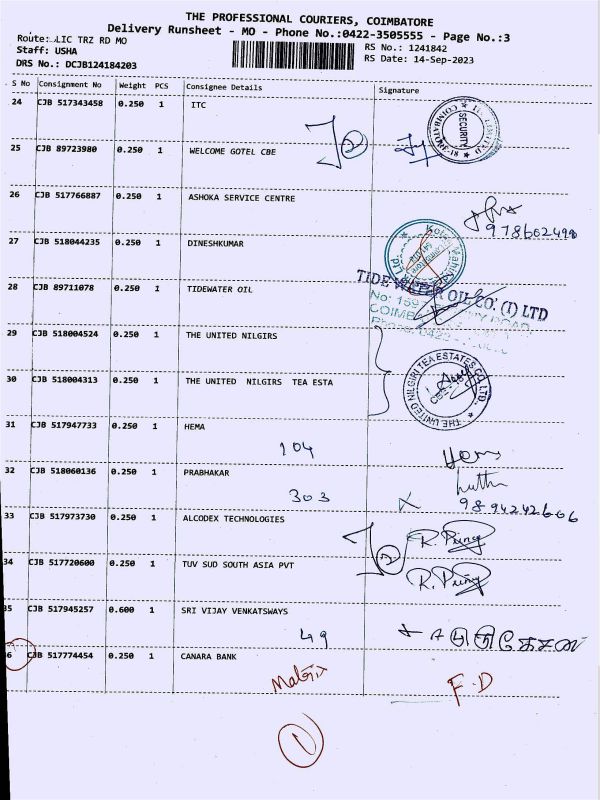 THE PROFESSIONAL COURIERS, COIMBATORE
Delivery Runsheet - MO - Phone No.:0422-3505555 - Page No.:3
Route:.LIC TRZ RD MO
RS No.: 1241842
Staff: USHA
RS Date: 14-Sep-2023
DRS No.: DCJB124184203
S No Consignment No Weight PCS Consignee Details Signature
24 CJB 517343458 0.250 1 ITC
SECURITY
25 CJB 89723980 0.250 1 WELCOME GOTEL CBE
26 CJB 517766887 0.250 1 ASHOKA SERVICE CENTRE
27 CJB 518044235 0.250 1 DINESHKUMAR
28 CJB 89711078 0.250 1 TIDEWATER OIL
TIDE WATER OIL CO. (I) LTD
29 CJB 518004524 0.250 1 THE UNITED NILGIRS
30 CJB 518004313 0.250 1 THE UNITED NILGIRS TEA ESTA
THE UNITED NILGIRI TEA ESTATES CO. LTD.
31 CJB 517947733 0.250 1 HEMA
104
Hema
32 CJB 518060136 0.250 1 PRABHAKAR
303
9894242606
33 CJB 517973730 0.250 1 ALCODEX TECHNOLOGIES
34 CJB 517720600 0.250 1 TUV SUD SOUTH ASIA PVT
35 CJB 517945257 0.600 1 SRI VIJAY VENKATSWAYS
49
36 CJB 517774454 0.250 1 CANARA BANK
F.D
1